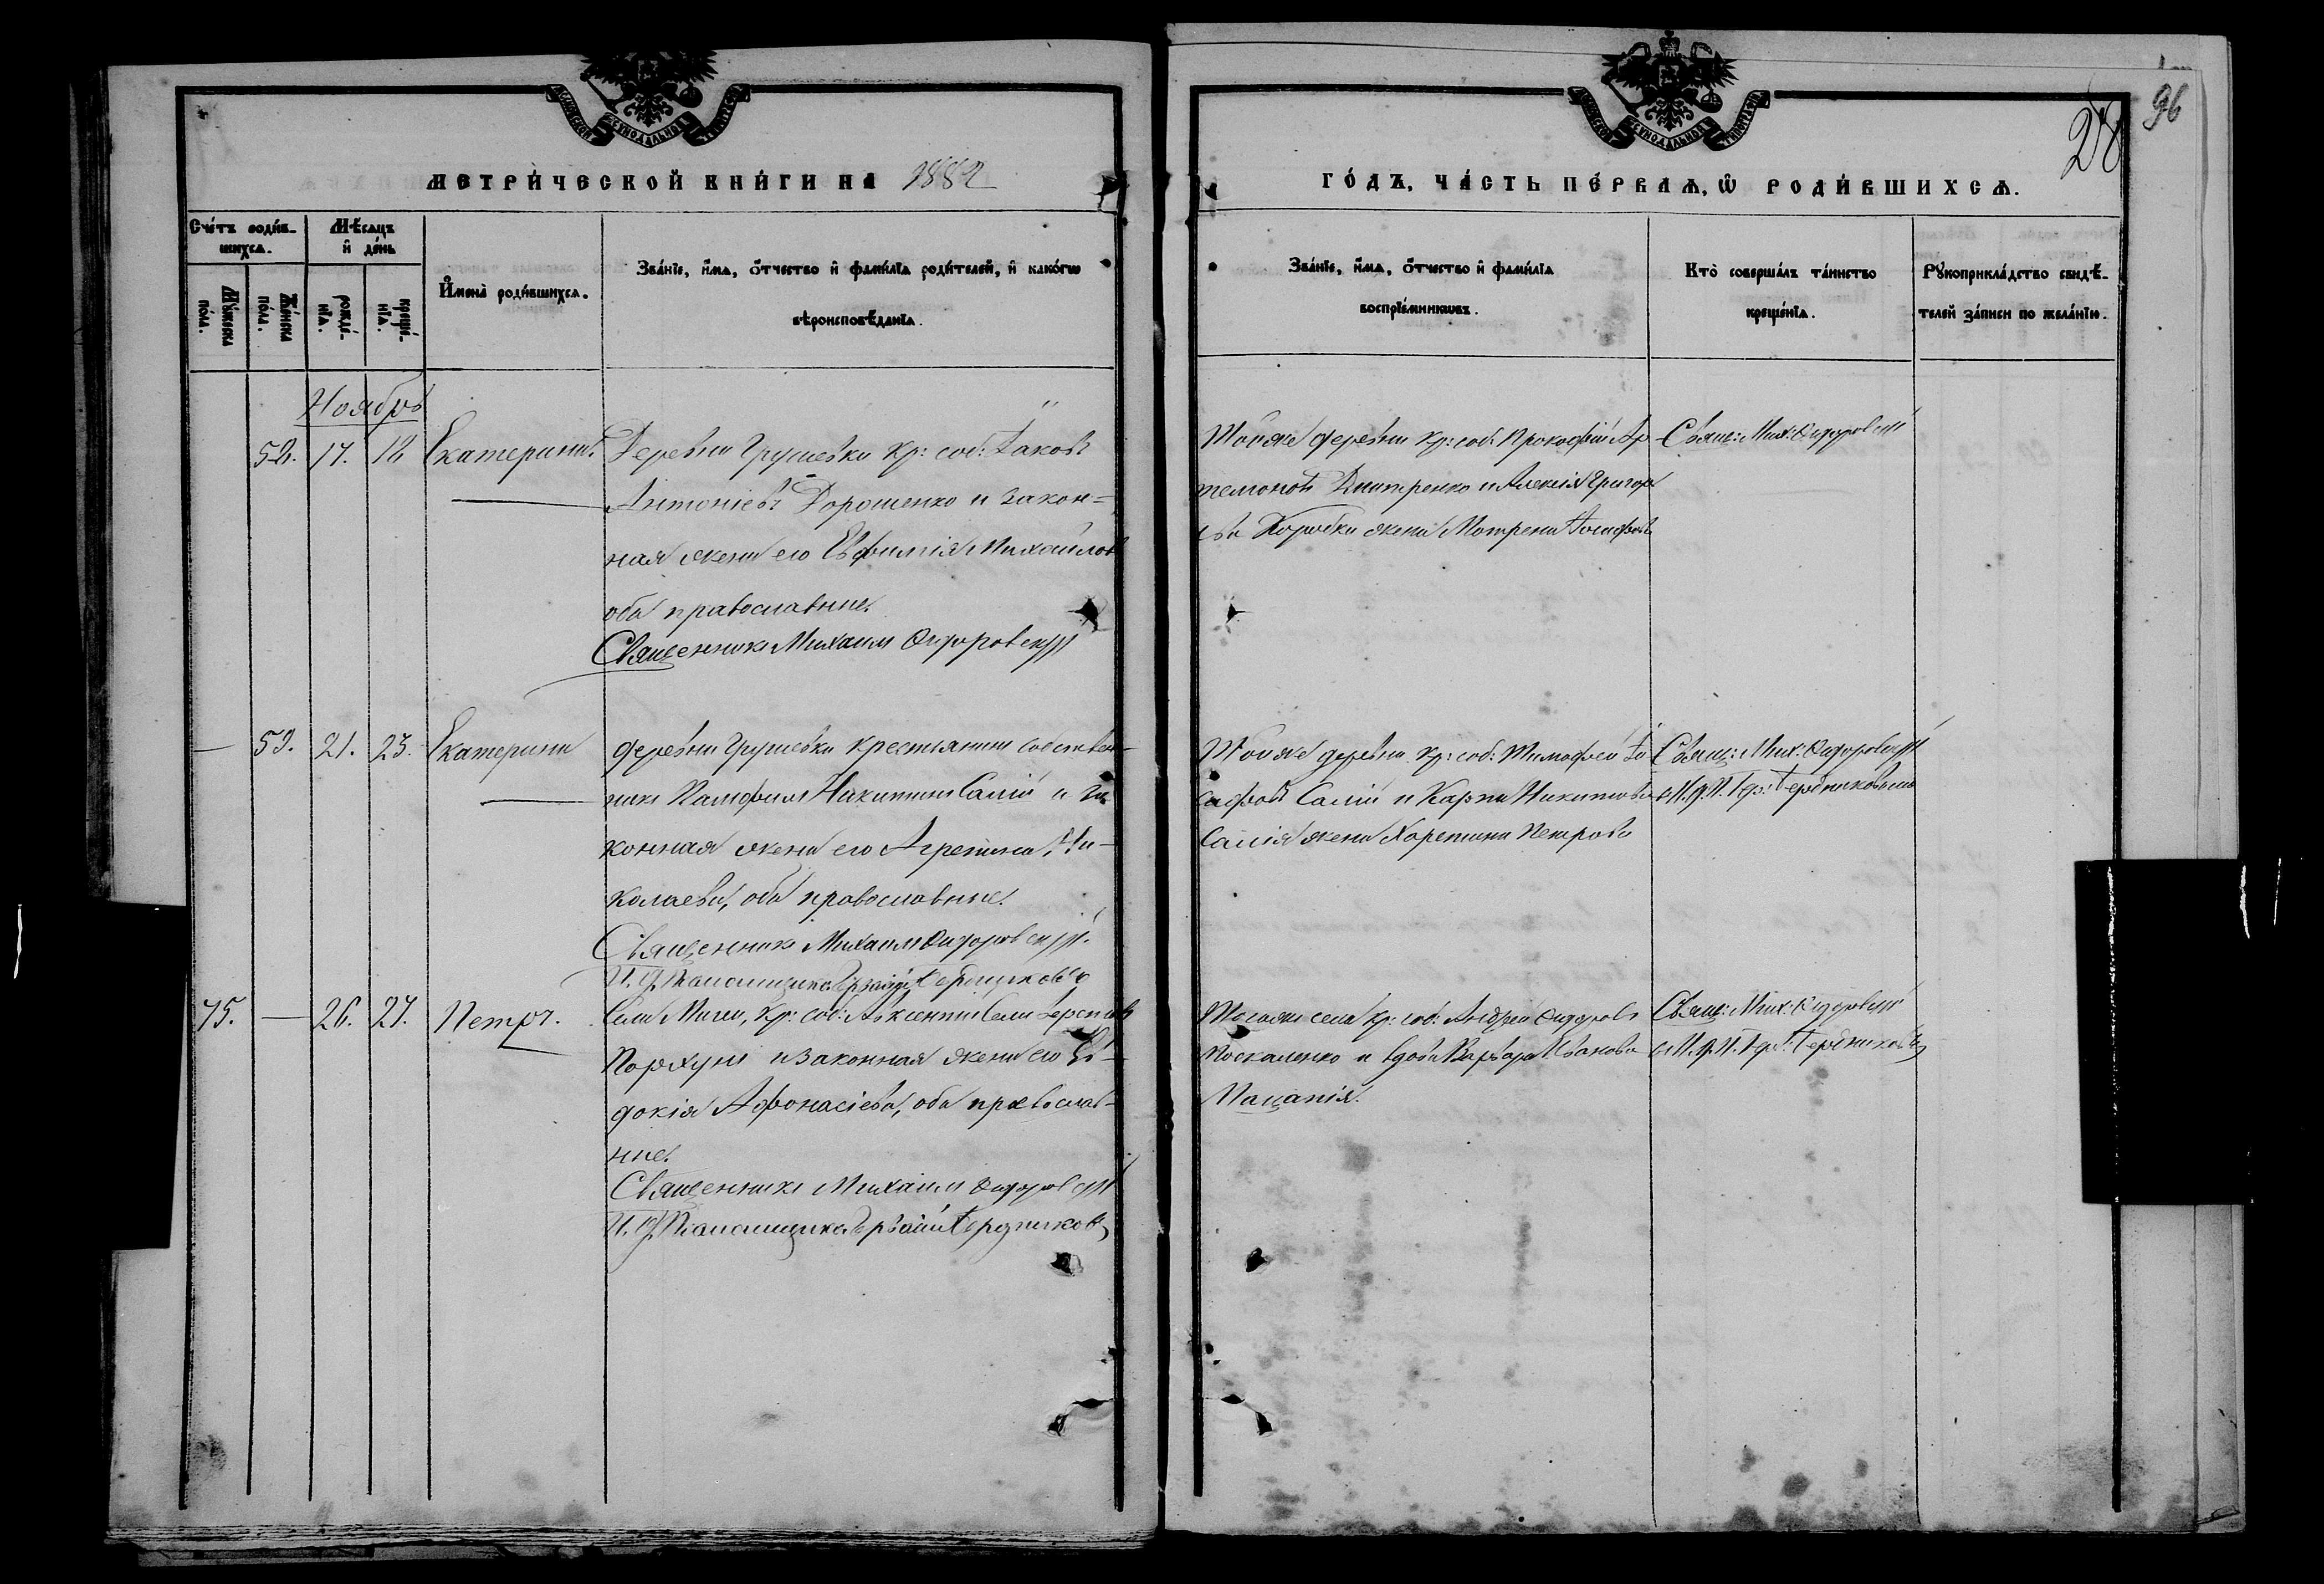 28
96
МЕТРИ́ЧЕСКОЙ КНИ́ГИ НА 1882
ГО́ДЪ, ЧА́СТЬ ПЕ́РВАѦ, Ѡ РОДИ́ВШИХСѦ.
Сче́тъ роди́в-
шихсѧ.
Мѣ́сѧцъ
и де́нь
Мꙋ́жеска по́ла.
Же́нска по́ла.
рожде́-
нїѧ.
креще́-
нїѧ.
Имена̀ роди́вшихсѧ.
Зва́нїе, и́мѧ, о́тчество и фами́лїѧ роди́телей, и како́гѡ
вѣроисповѣ́данїѧ.
Зва́нїе, и́мѧ, о́тчество и фами́лїѧ
воспрїе́мникѡвъ.
Кто̀ соверша́лъ та́инство
креще́нїѧ.
Рꙋкоприкла́дство свидѣ́-
телей за́писи по жела́нїю.
Ноябрь
52. 17. 18 Екатерина
Деревни Грушевки кр: соб: Іаковъ
Антоніевъ Дорошенко и закон-
ная жена его Евфимія Михайлова
оба православные.
Священникъ Михаилъ Сидоровскій
Тойже деревни кр: соб: Прокофій Ар-
темоновъ Дмитренко и Алексія Григорь
ева Коробки жена Мотрена Іосифова
Свящ: Мих: Сидоровскій
— 53. 21. 23. Екатерина
деревни Грушевки крестьянинъ собствен-
никъ Памфилъ Никитинъ Салій и за-
конная жена его Агрепина Ни-
колаева, оба православные.
Священникъ Михаилъ Сидоровскій.
И. Д. Псаломщика
Тойже деревни кр: соб: Тимофей Іо
сифовъ Салій и Карпа Никитова
Салія жена Харетина Петрова
Свящ: Мих: Сидоровскій
съ И. Д. П.
75. — 26. 27. Петръ.
Села Мигеи, кр: соб: Авксентій Селиверстовъ
и законная жена его Ев-
докія Афонасіева, оба православ-
ные.
Священникъ Михаилъ Сидоровскій
И. Д. Псаломщика
Тогоже села кр: соб: Андрей Сидоровъ
Москаленко и вдова Варвара Иванова
Свящ: Мих: Сидоровскій
съ И. Д. П.